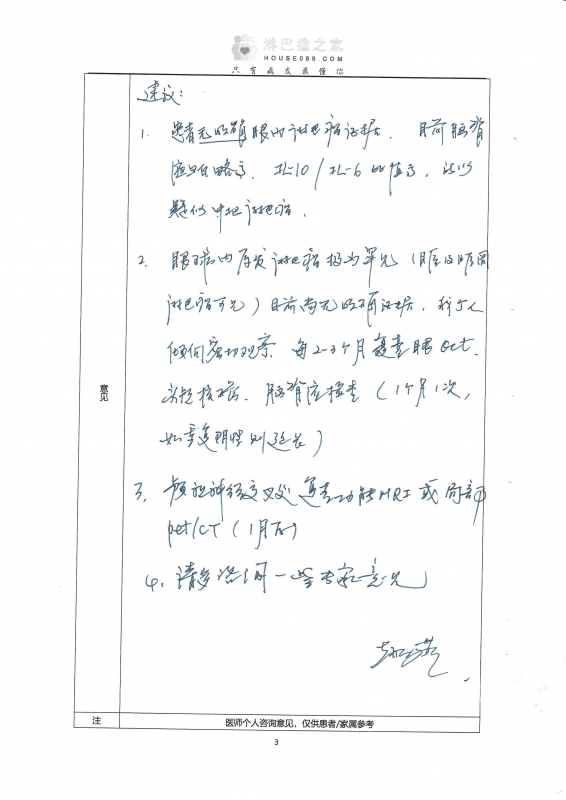 淋巴瘤之家
HOUSE086.COM
只有病友最懂你
建议：
1. 患者无明确眼内淋巴瘤证据．目前脑脊
液蛋白略高．IL-10/IL-6比值高，
疑似中枢淋巴瘤．
2. 眼内原发淋巴瘤极为罕见（
淋巴瘤可见）目前尚无明确证据．我个人
倾向密切观察．每2-3个月复查眼Oct．
头颅核磁．脑脊液检查（1个月1次，
如连阴性则延长）
3. 视神经交叉处复查功能MRI或局部
pet/CT（1月后）
4. 请多咨问一些专家意见
意见
注
医师个人咨询意见，仅供患者/家属参考
3